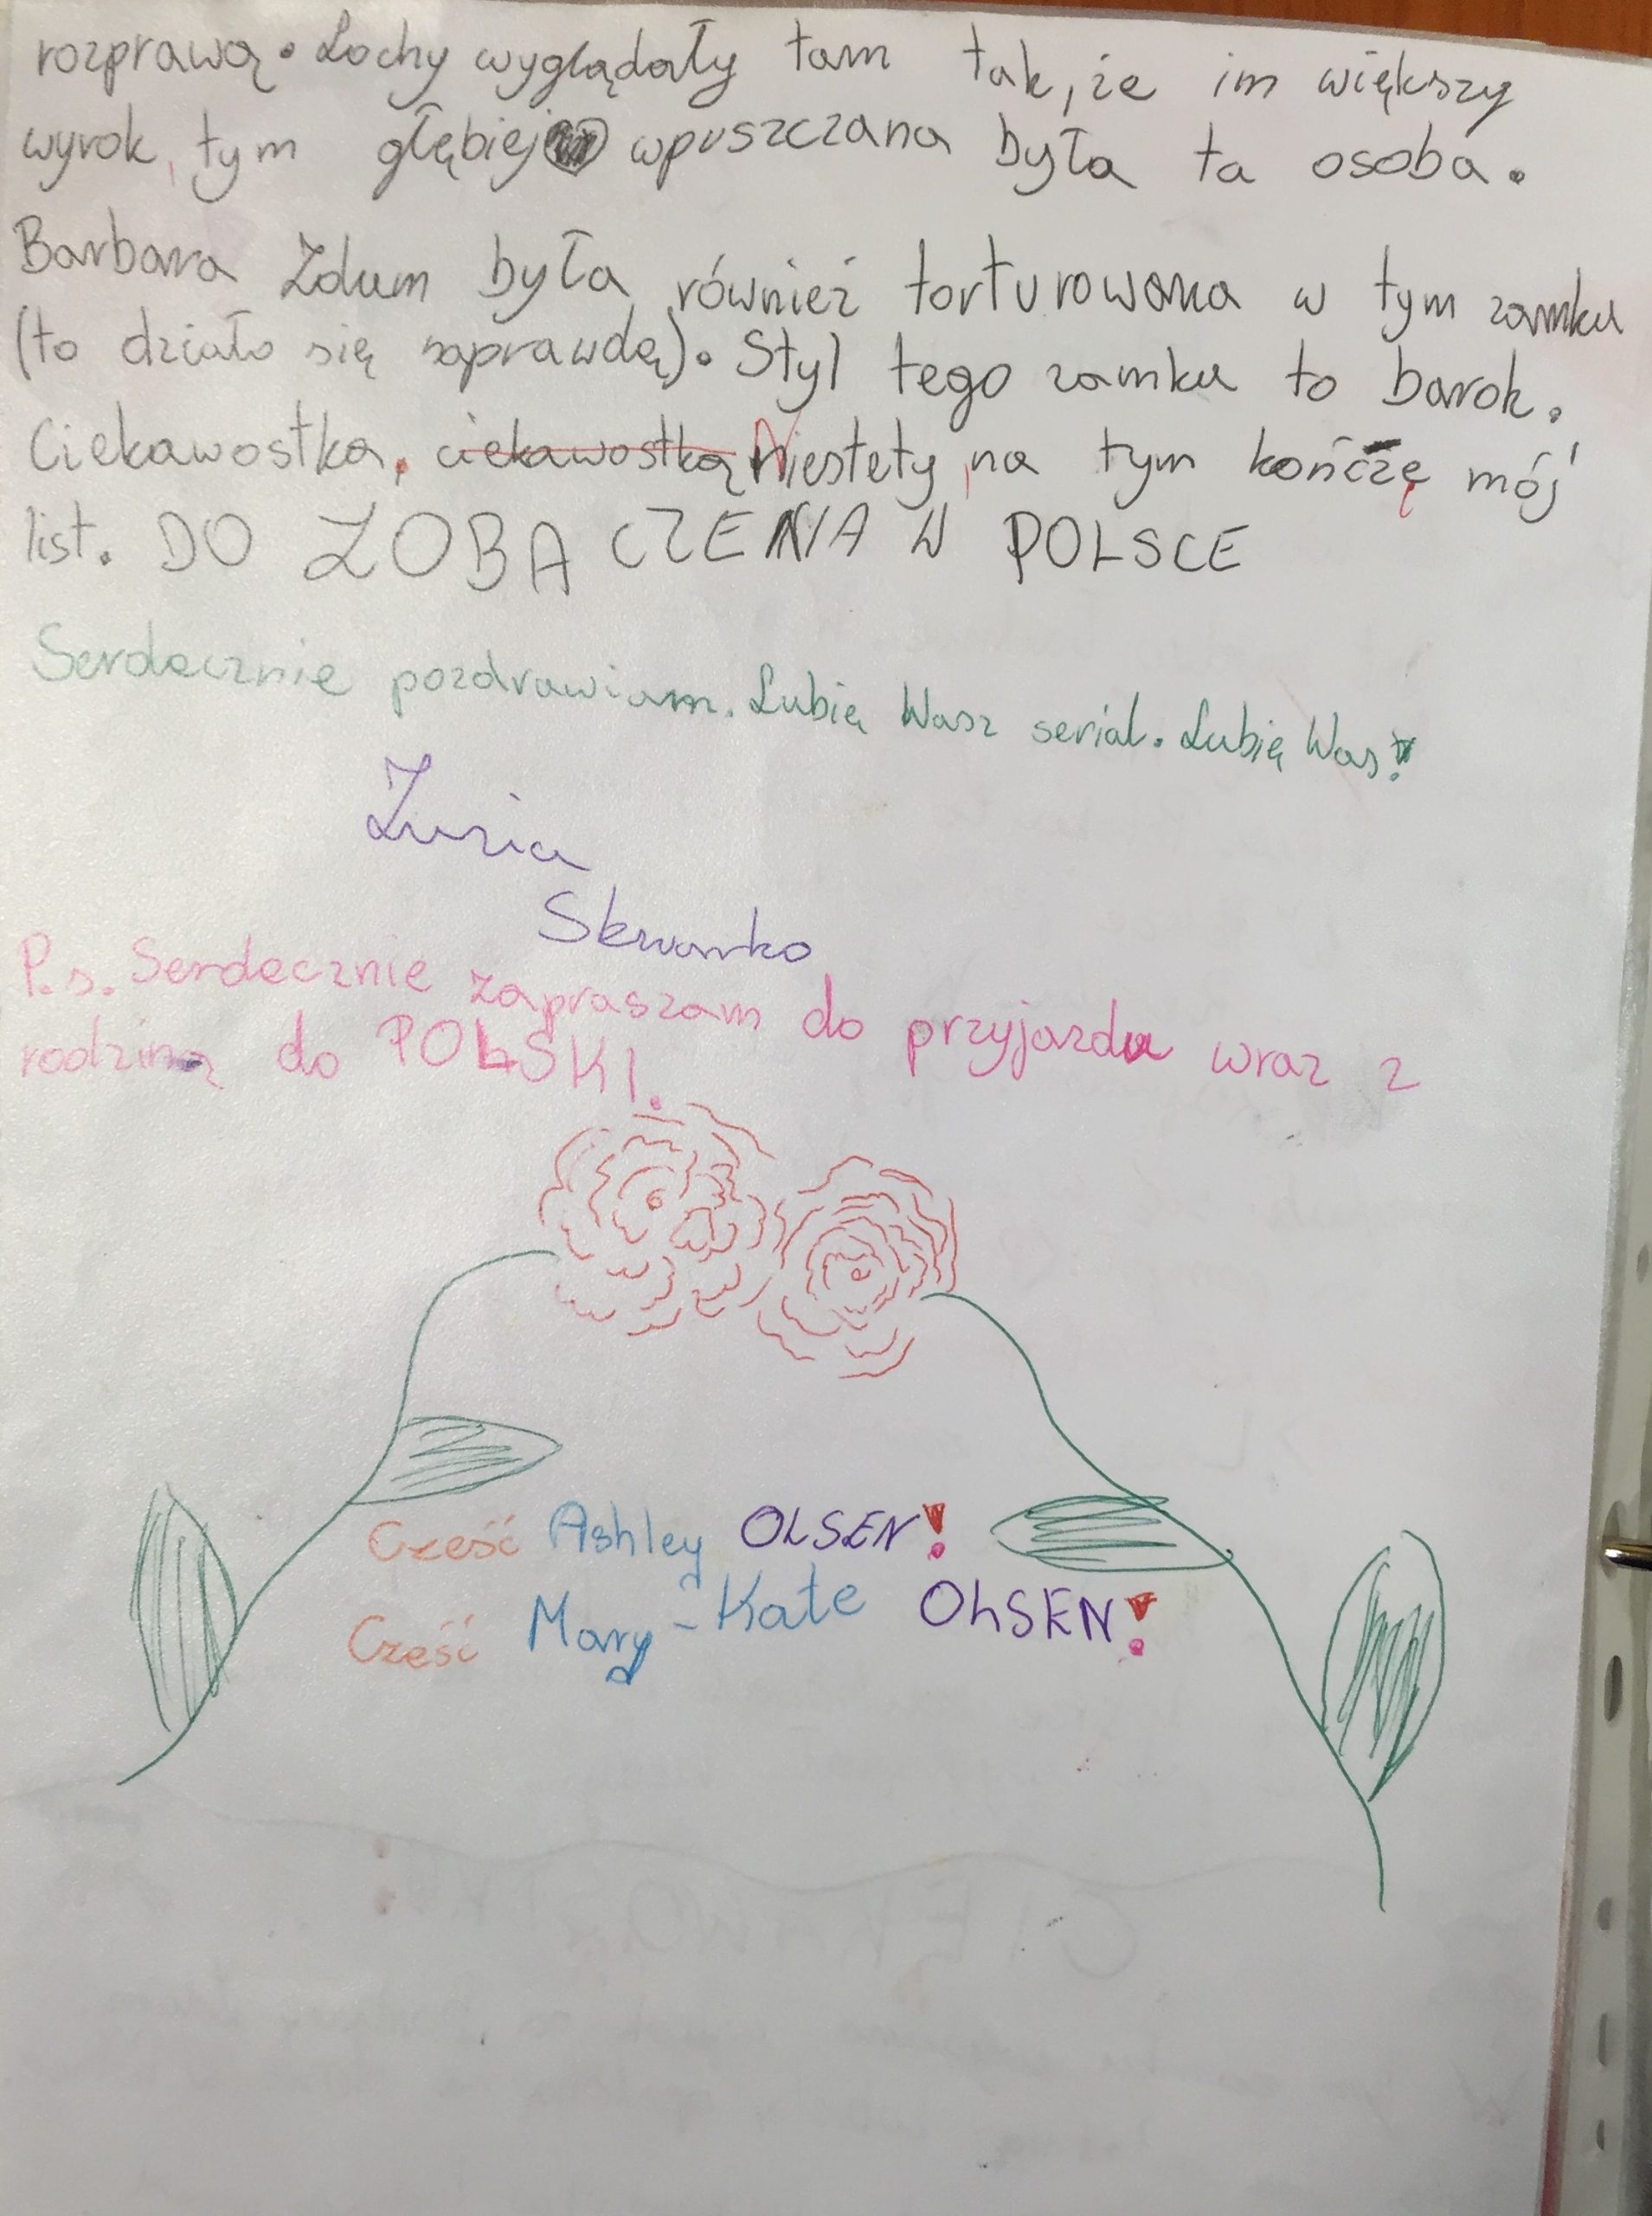 rozprawą. Lochy wyglądały tam tak, że im większy
wyrok, tym głębiej wpuszczana była ta osoba.
Barbara Zdum była również torturowana w tym zamku
(to działo się naprawdę). Styl tego zamku to barok.
Ciekawostka. ciekawostką Niestety, na tym kończę mój
list. DO ZOBACZENIA W POLSCE
Serdecznie pozdrawiam. Lubię Wasz serial. Lubię Was!
Zuzia
P.s. Serdecznie zapraszam do przyjazdu wraz z
rodziną do POLSKI.
Cześć Ashley OLSEN!
Cześć Mary-Kate OLSEN!